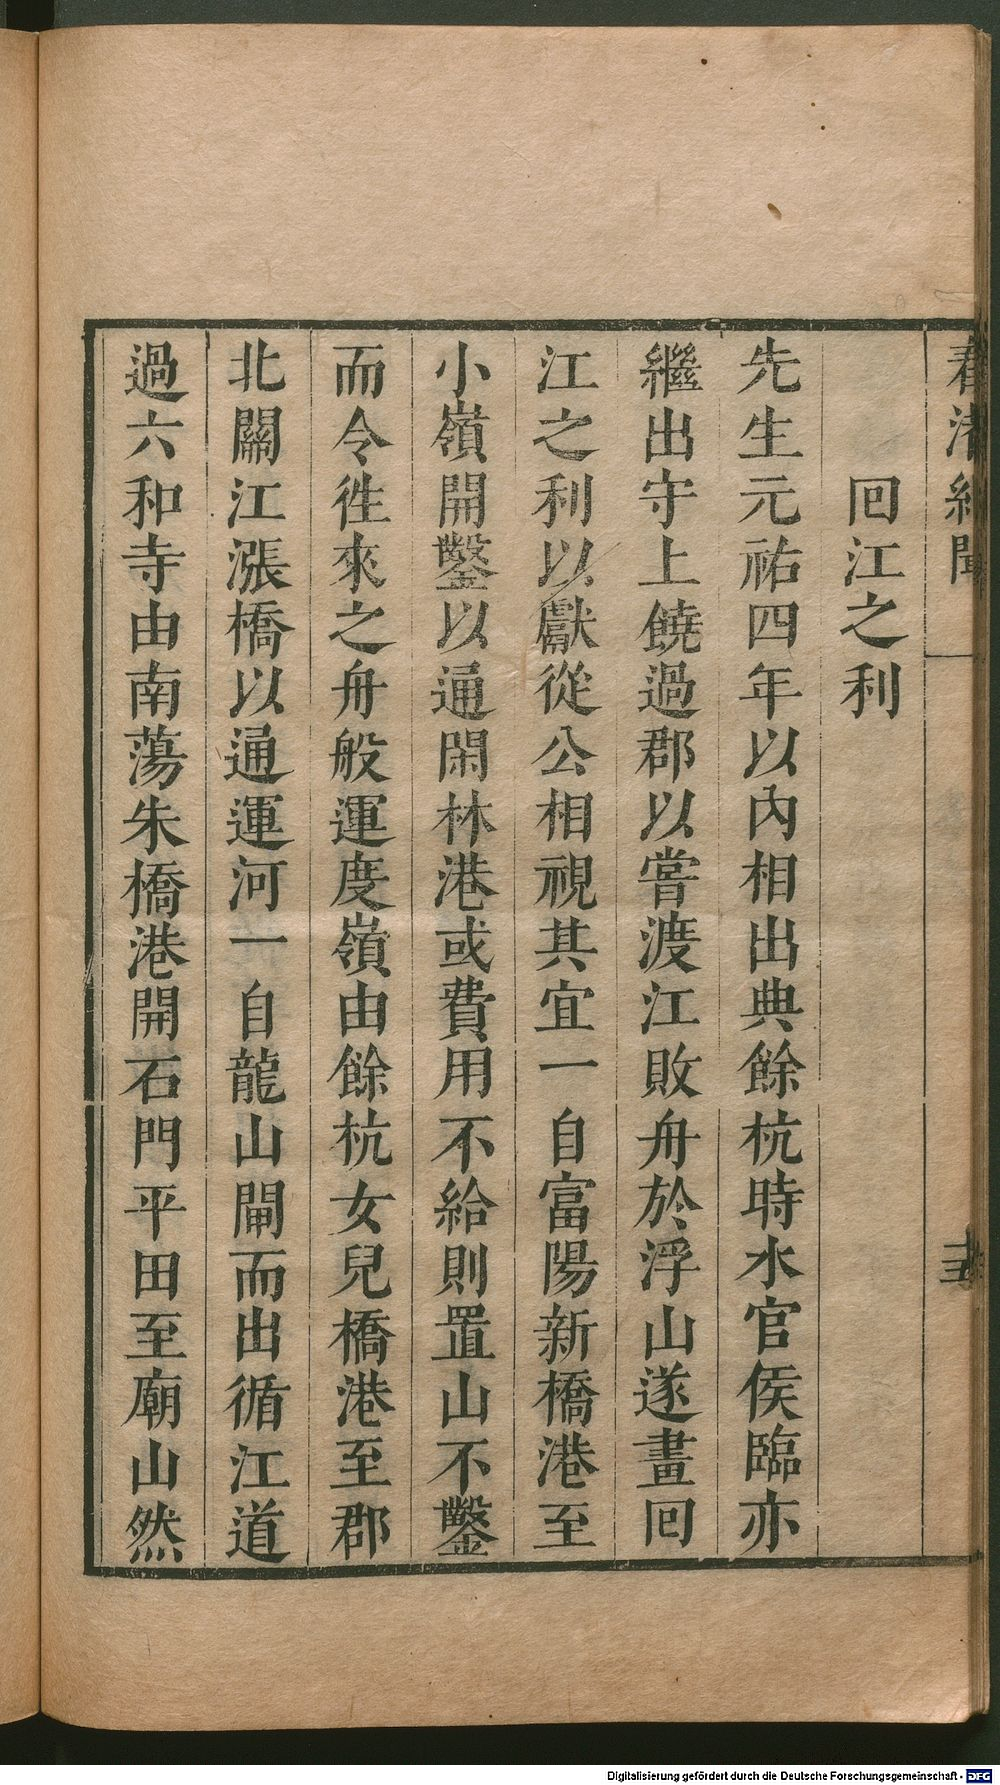 春渚紀聞
回江之利
先生元祐四年以內相出典餘杭時水官侯臨亦
繼出守上饒過郡以嘗渡江敗舟於浮山遂畫回
江之利以獻從公相視其宜一自富陽新橋港至
小嶺開鑿以通閑林港或費用不給則置山不鑿
而令徃來之舟般運度嶺由餘杭女兒橋港至郡
北關江漲橋以通運河一自龍山閘而出循江道
過六和寺由南蕩朱橋港開石門平田至廟山然
Digitalisierung gefördert durch die Deutsche Forschungsgemeinschaft - DFG